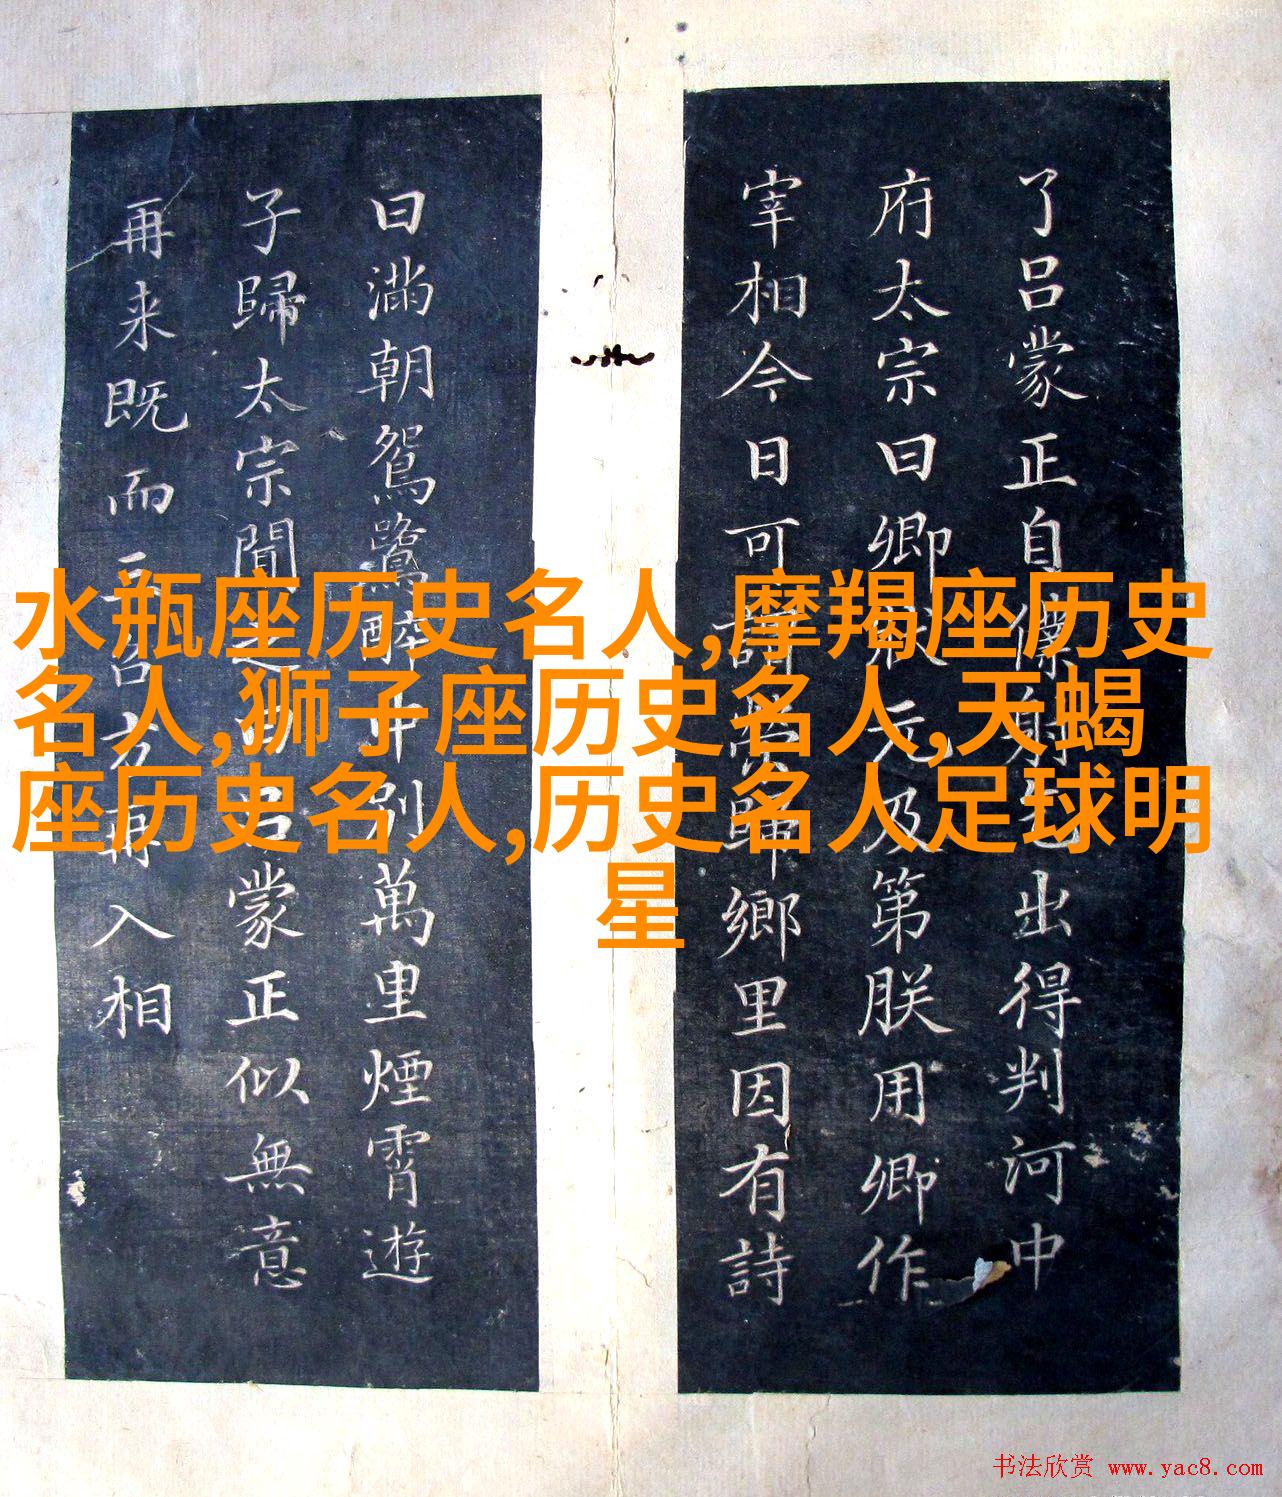 了呂蒙正自僕射出得判河中
府太宗曰卿狀元及第朕用卿作
宰相今日可謂榮歸鄉里因有詩
曰滿朝鴛鷺醉中別萬里煙霄遊
子歸太宗聞之曰呂蒙正似無意
再来既而召方再入相
水瓶座历史名人,摩羯座历史
名人,狮子座历史名人,天蝎
座历史名人,历史名人足球明
星
书法欣赏 www.yac8.com